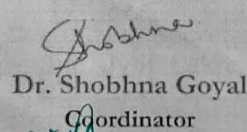 Shobhna
Dr. Shobhna Goyal
Coordinator